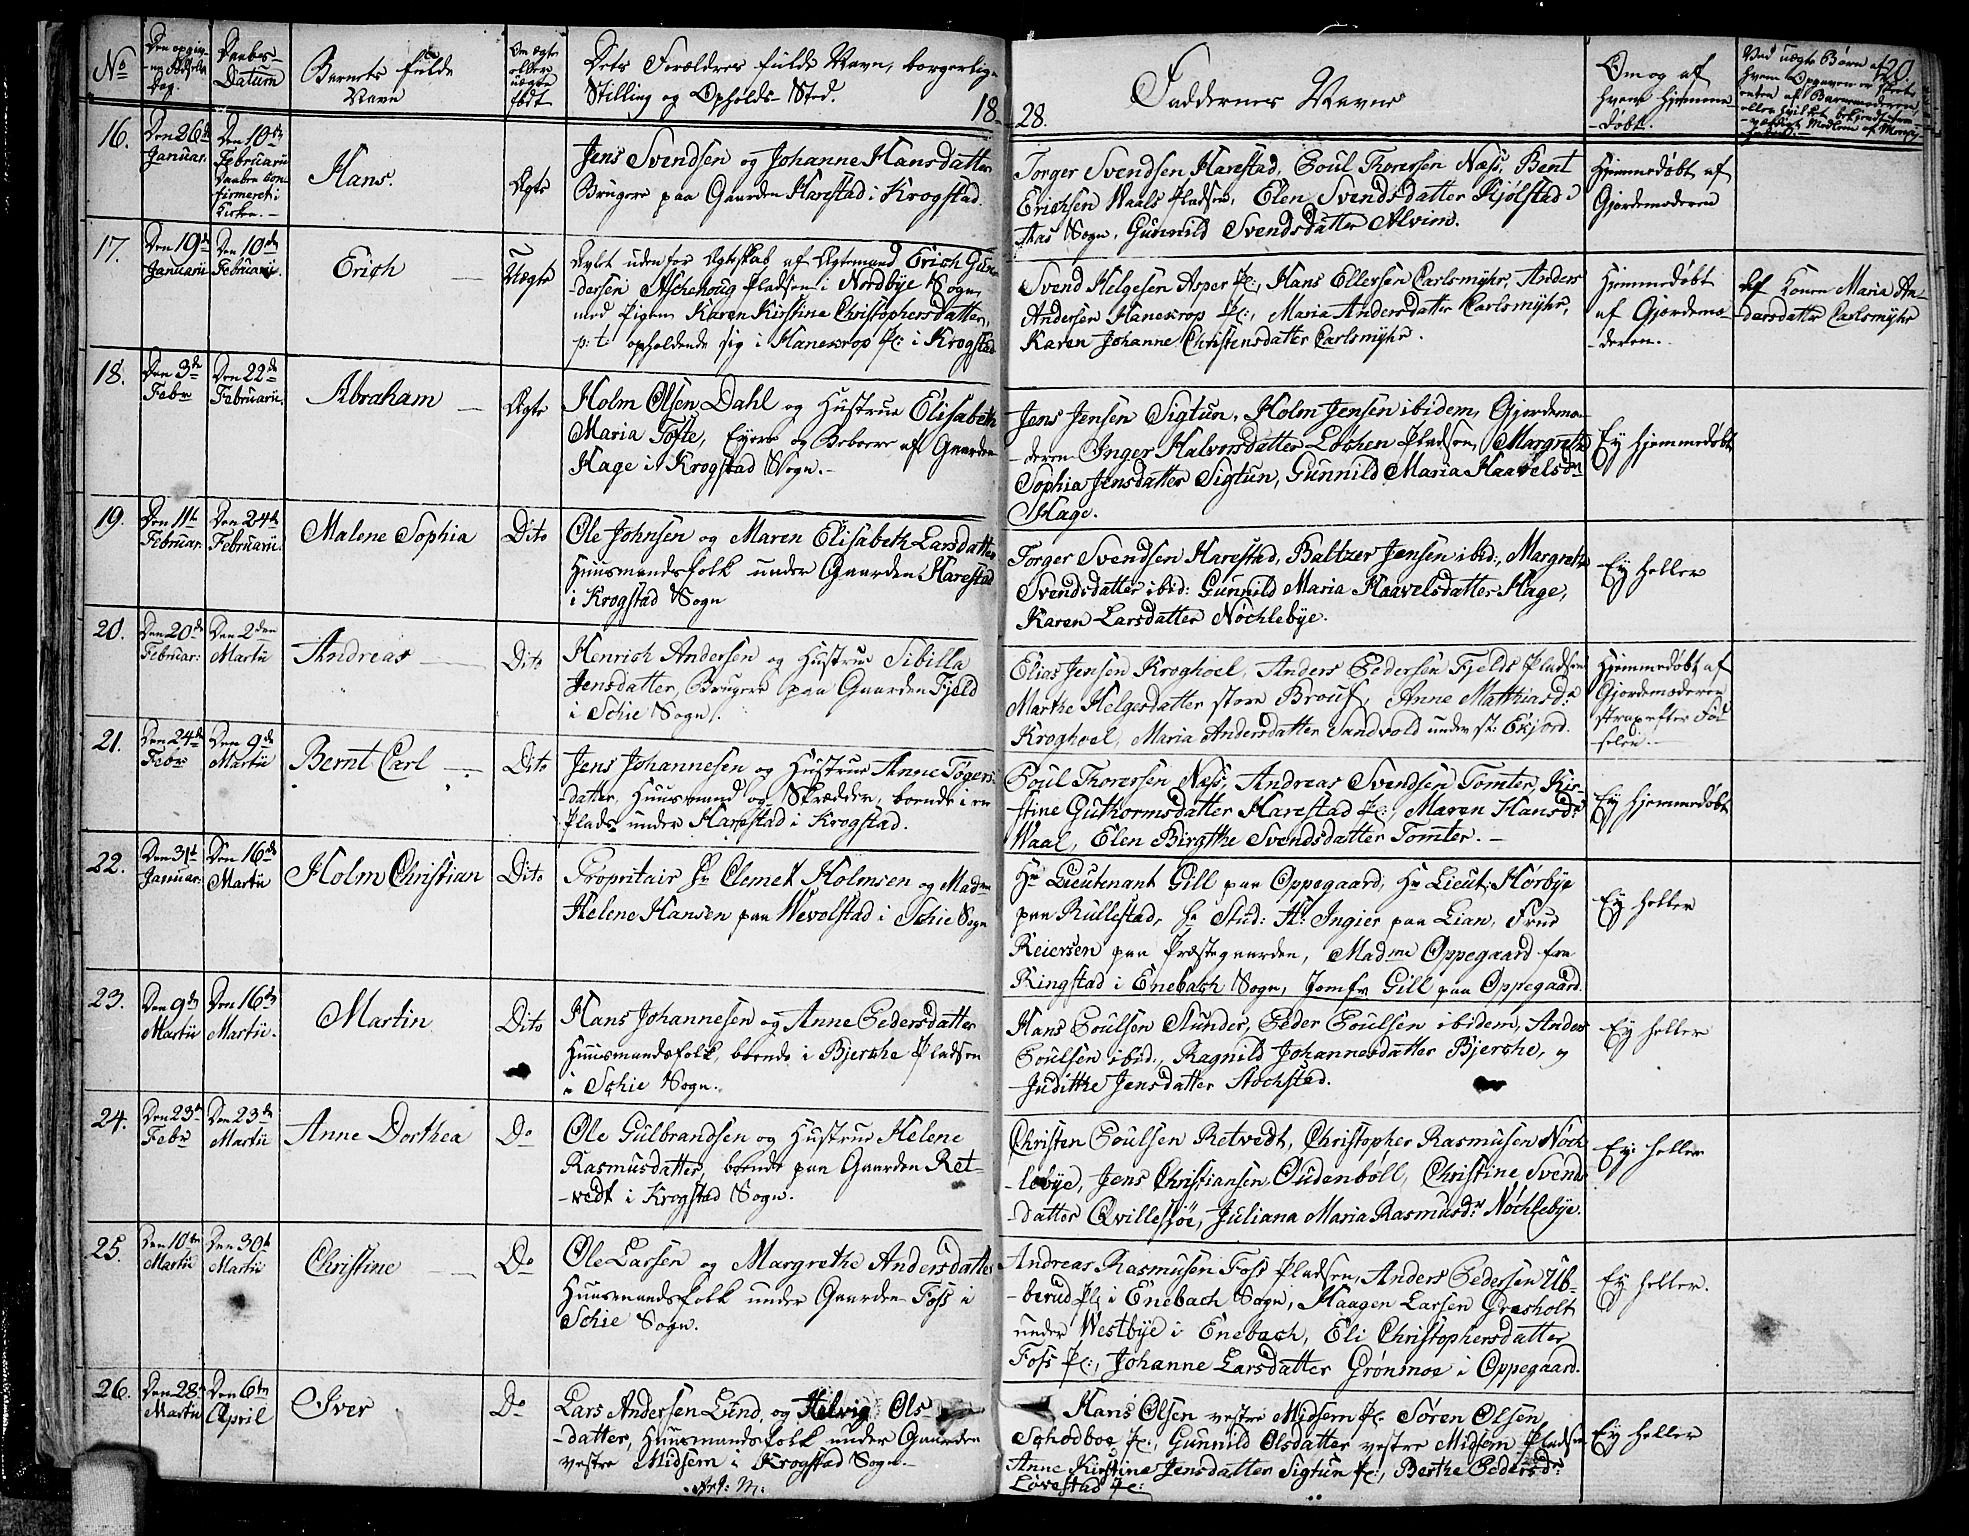 No
Den opgiv-
ne Fødsels
Dag.
Daabs-
Datum
Barnets fulde
Navn
Om ægte
eller
uægte
født
Dets Forældres fulde Navn, borgerlige
Stilling og Opholds-Sted.
18
28.
Faddernes Navne
Om og af
hvem hjemme
-døbt.
20.
Ved uægte Børn af
hvem Opgaven er skeet
16.
Den 26de
Januar.
Den 10de
Februarii
Daaben Con
firmeret i
Kirken.-
Hans.
Ægte
Jens Svendsen og Johanne Hansdatter
Brugere paa Gaarden Harestad i Krogstad.
Torger Svendsen Harestad, Poul Thoresen Næss, Bent
Erichsen Waals Pladsen, Elen Svendsdatter Kjølstad i
Aas Sogn, Gunnild Svendsdatter Alvim.
Hjemmedøbt af
Gjordemoderen
17.
Den 19de
Januarii
Den 10de
Februarii.
Erich
Uægte
Avlet uden for Ægteskab af Ægtemand Erich Gun
dersen Aschehoug Pladsen i Nordbye Sogn,
med Pigen Karen Kirstine Christophersdatter,
p: t: opholdende sig i Hanekrop Pl: i Krogstad
Svend Helgesen Asper Pl:, Hans Ellersen Carlsmyhr, Anders
Andersen Hanekrop Pl:, Maria Andersdatter Carlsmyhr,
Karen Johanne Christensdatter Carlsmyhr.
Hjemmedøbt
af Gjordemo-
-deren.
Af Konen Maria An-
dersdatter Carlsmyhr
18.
Den 3de
Febr
Den 22de
Februarii.
Abraham
Ægte
Holm Olsen Dahl og Hustrue Elisabeth
Maria Tofte, Eyere og Beboere af Gaarden
Hage i Krogstad Sogn.-
Jens Jensen Sigtun, Holm Jensen ibidem, Gjordemo-
-deren Inger Halvorsdatter Lochen Pladsen, Margrethe
Sophia Jensdatter Sigtun, Gunnild Maria Haavelsdr
Hage.
Ey hjemmedøbt
19.
Den 11te
Februar.
Den 24de
Februarii.
Malene Sophia
Dito
Ole Johnsen og Maren Elisabeth Larsdatter
Huusmandsfolk under Gaarden Harestad
i Krogstad Sogn
Torger Svendsen Harestad, Baltzer Jensen ibid:, Margrethe
Svendsdatter ibid: Gunnild Maria Haavelsdatter Hage,
Karen Larsdatter Nøchlebye.
Ey heller
20.
Den 20de
Februar:
Den 2den
Martii
Andreas
Dito
Henrich Andersen og Hustrue Sibilla
Jensdatter, Brugere paa Gaarden Fjeld
i Schie Sogn.
Elias Jensen Kroghoel, Anders Pedersen Fjelds Pladsen
Marthe Helgesdatter store Brouf, Anne Mathiasdr
Kroghoel, Maria Andersdatter Sandvold under st: Ekjord.
Hjemmedøbt af
Gjordemoderen
strax efter Fød
selen.-
21.
Den 24de
Febr
Den 9de
Martii
Bernt Carl
Dito
Jens Johannesen og Hustrue Anne Togers
-datter, Huusmand og Skrædder, boende i en
Plads under Harestad i Krogstad.
Poul Thoresen Næss, Andreas Svendsen Tomter, Kir-
stine Guthormsdatter Harestad Pl:, Maren Hansdr
Waal, Elen Birgthe Svendsdatter Tomter.-
Ey hjemmedøbt
22.
Den 31te
Januar:
Den 16de
Martii
Holm Christian
Dito
Propritair Hr Clemet Holmsen og Madme
Helene Hansen paa Wevelstad i Schie Sogn
Hr Lieutenant Gill paa Oppegaard, Hr Lieut: Hørbye
paa Rullestad, Hr Stud: H: Ingier paa Lian, Frue
Keiersen paa Præstegaarden, Madme Oppegaard fra
Ringstad i Enebach Sogn, Jomfr Gill paa Oppegaard.
Ey heller
23.
Den 9de
Martii
Den 16de
Martii.
Martin
Dito
Hans Johannesen og Anne Pedersdatter
Huusmandsfolk, boende i Bjerche Pladsen
i Schie Sogn.
Hans Poulsen Aunder, Peder Poulsen ibidem, Anders
Poulsen ibid:, Ragnild Johannesdatter Bjerche, og
Judithe Jensdatter Stochstad.
Ey heller
24.
Den 23de
Febr
Den 23de
Martii
Anne Dorthea
Do
Ole Gulbrandsen og Hustrue Helene
Rasmusdatter, boende paa Gaarden Ret-
-vedt i Krogstad Sogn.
Christen Poulsen Retvedt, Christopher Rasmusen Nøch
-lebye, Jens Christiansen Oudenboll, Christine Svends
-datter Qvillesjøe, Juliana Maria Rasmusdr Nøchlebye.
Ey heller
25.
Den 10de
Martii
Den 30te
Martii
Christine
Do
Ole Larsen og Margrethe Andersdatter
Huusmandsfolk under Gaarden Foss i
Schie Sogn.
Andreas Rasmusen Foss Pladsen, Anders Pedersen Ub-
-berud Pl: i Enebach Sogn, Haagen Larsen Gresholt
under Westbye i Enebach, Eli Christophersdatter
Foss Pl:, Johanne Larsdatter Grønmoe i Oppegaard.
Ey heller.
26.
Den 28de
Martii
Den 6te
April
Iver
Do
Lars Andersen Lund, og Helvig Ols-
-datter, Huusmandsfolk under Gaarden
vestre Midsem i Krogstad Sogn.-
Hans Olsen vestre Midsem Pl: Søren Olsen
Schodboe Pl:, Gunnild Olsdatter vestre Midsem Pladsen
Anne Kirstine Jensdatter Sigtun Pl:, Berthe Pedersdr
Løvestad Pl:
Ey heller